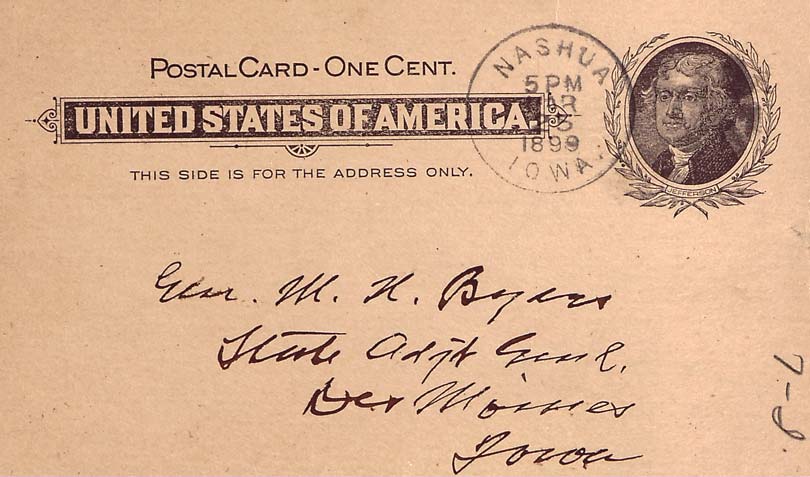 POSTAL CARD - ONE CENT.
UNITED STATES OF AMERICA.
THIS SIDE IS FOR THE ADDRESS ONLY.
NASHUA
5 PM
1899
IOWA.
JEFFERSON
Gen. M. H. Byers
State Adjt Genl.
Des Moines
Iowa
7-9.